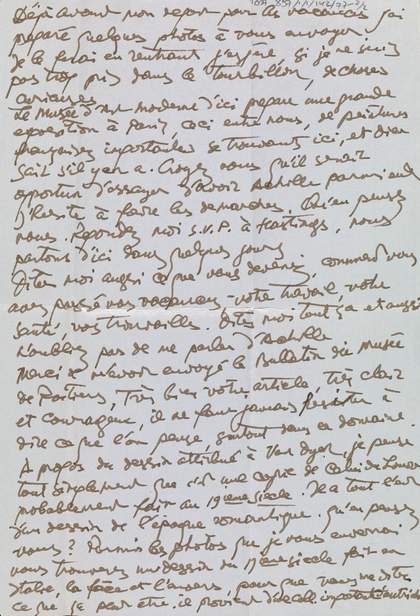 Déjà avant mon départ pour les vacances j'ai
préparé quelques photos à vous envoyer.
Je le ferai en rentrant j'espère, si je ne suis
pas trop pris dans le tourbillon, de choses
curieuses
Le Musée d'Art moderne d'ici prépare une grande
exposition à Paris, ceci entre nous, de peintures
françaises importantes se trouvant ici, et dieu
sait s'il y en a. Croyez vous qu'il serait
opportun d'essayer d'avoir Achille parmi eux
j'hésite à faire les démarches. Qu'en pensez
vous. Répondez moi S.V.P. à Hastings, nous
partons d'ici dans quelques jours
Dites moi aussi ce que vous devenez, comment vous
avez passé vos vacances - votre travail, votre
santé, vos trouvailles. Dites moi tout ça et aussi
N'oubliez pas de me parler d'Achille
Merci de m'avoir envoyé le Bulletin du Musée
de Poitiers, très bien votre article, très clair
et courageux, il ne faut jamais hésiter à
dire ce que l'on pense, surtout dans ce domaine.
A propos du dessin attribué à Van Dyck, je pense
tout simplement que c'est une copie de celui du Louvre
probablement fait au 19ème siècle. Il a tout l'air
d'un dessin de l'époque romantique. Qu'en pensez
vous? Parmi les photos que je vous enverrai
vous trouverez un dessin du 17ème siècle fait en
Italie, la face et l'envers, pour que vous me disiez
ce que ça peut être. il provient d'une collection importante